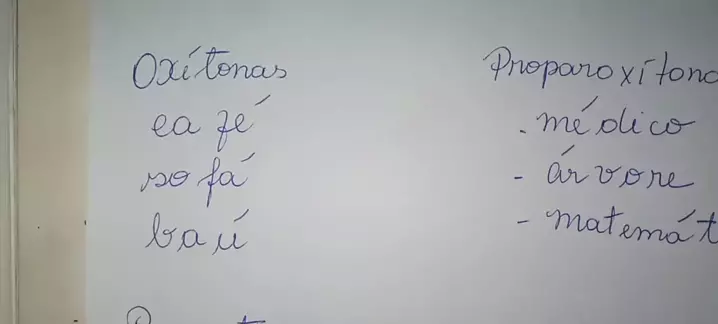 Oxítonas
café
sofá
baú
Proparoxítona
. médico
- árvore
- matemát